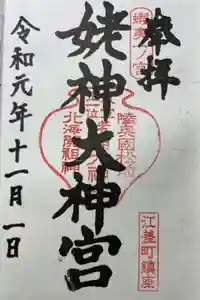 奉拝
蝦夷一ノ宮
姥神大神宮
陸奥國松前
北海開祖神
江差町鎮座
令和元年十一月一日